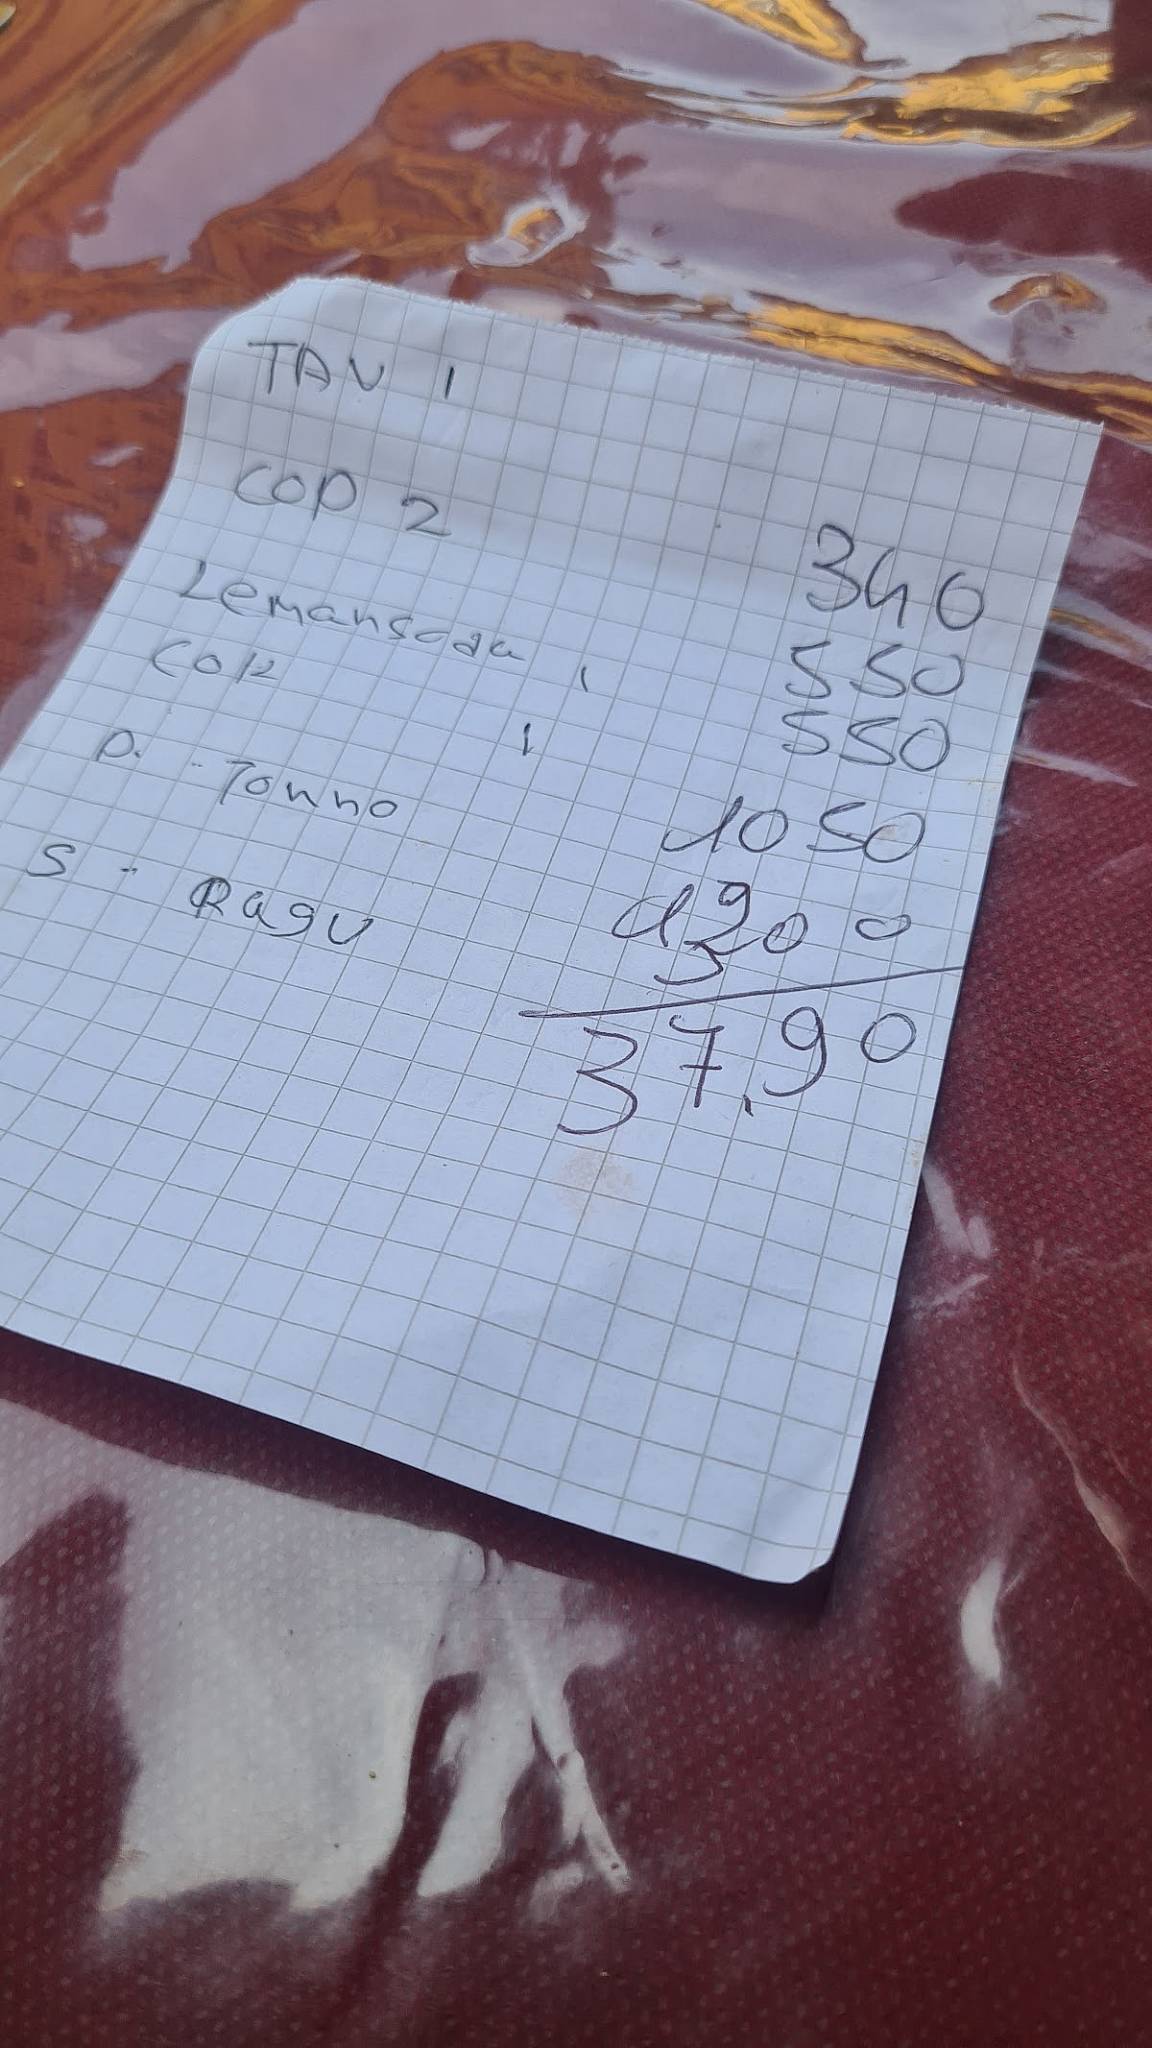 TAV 1
COP 2 340
Lemonsoda 1 550
COK 1 550
P. - Tonno 1050
S - Ragu 1300
37.90